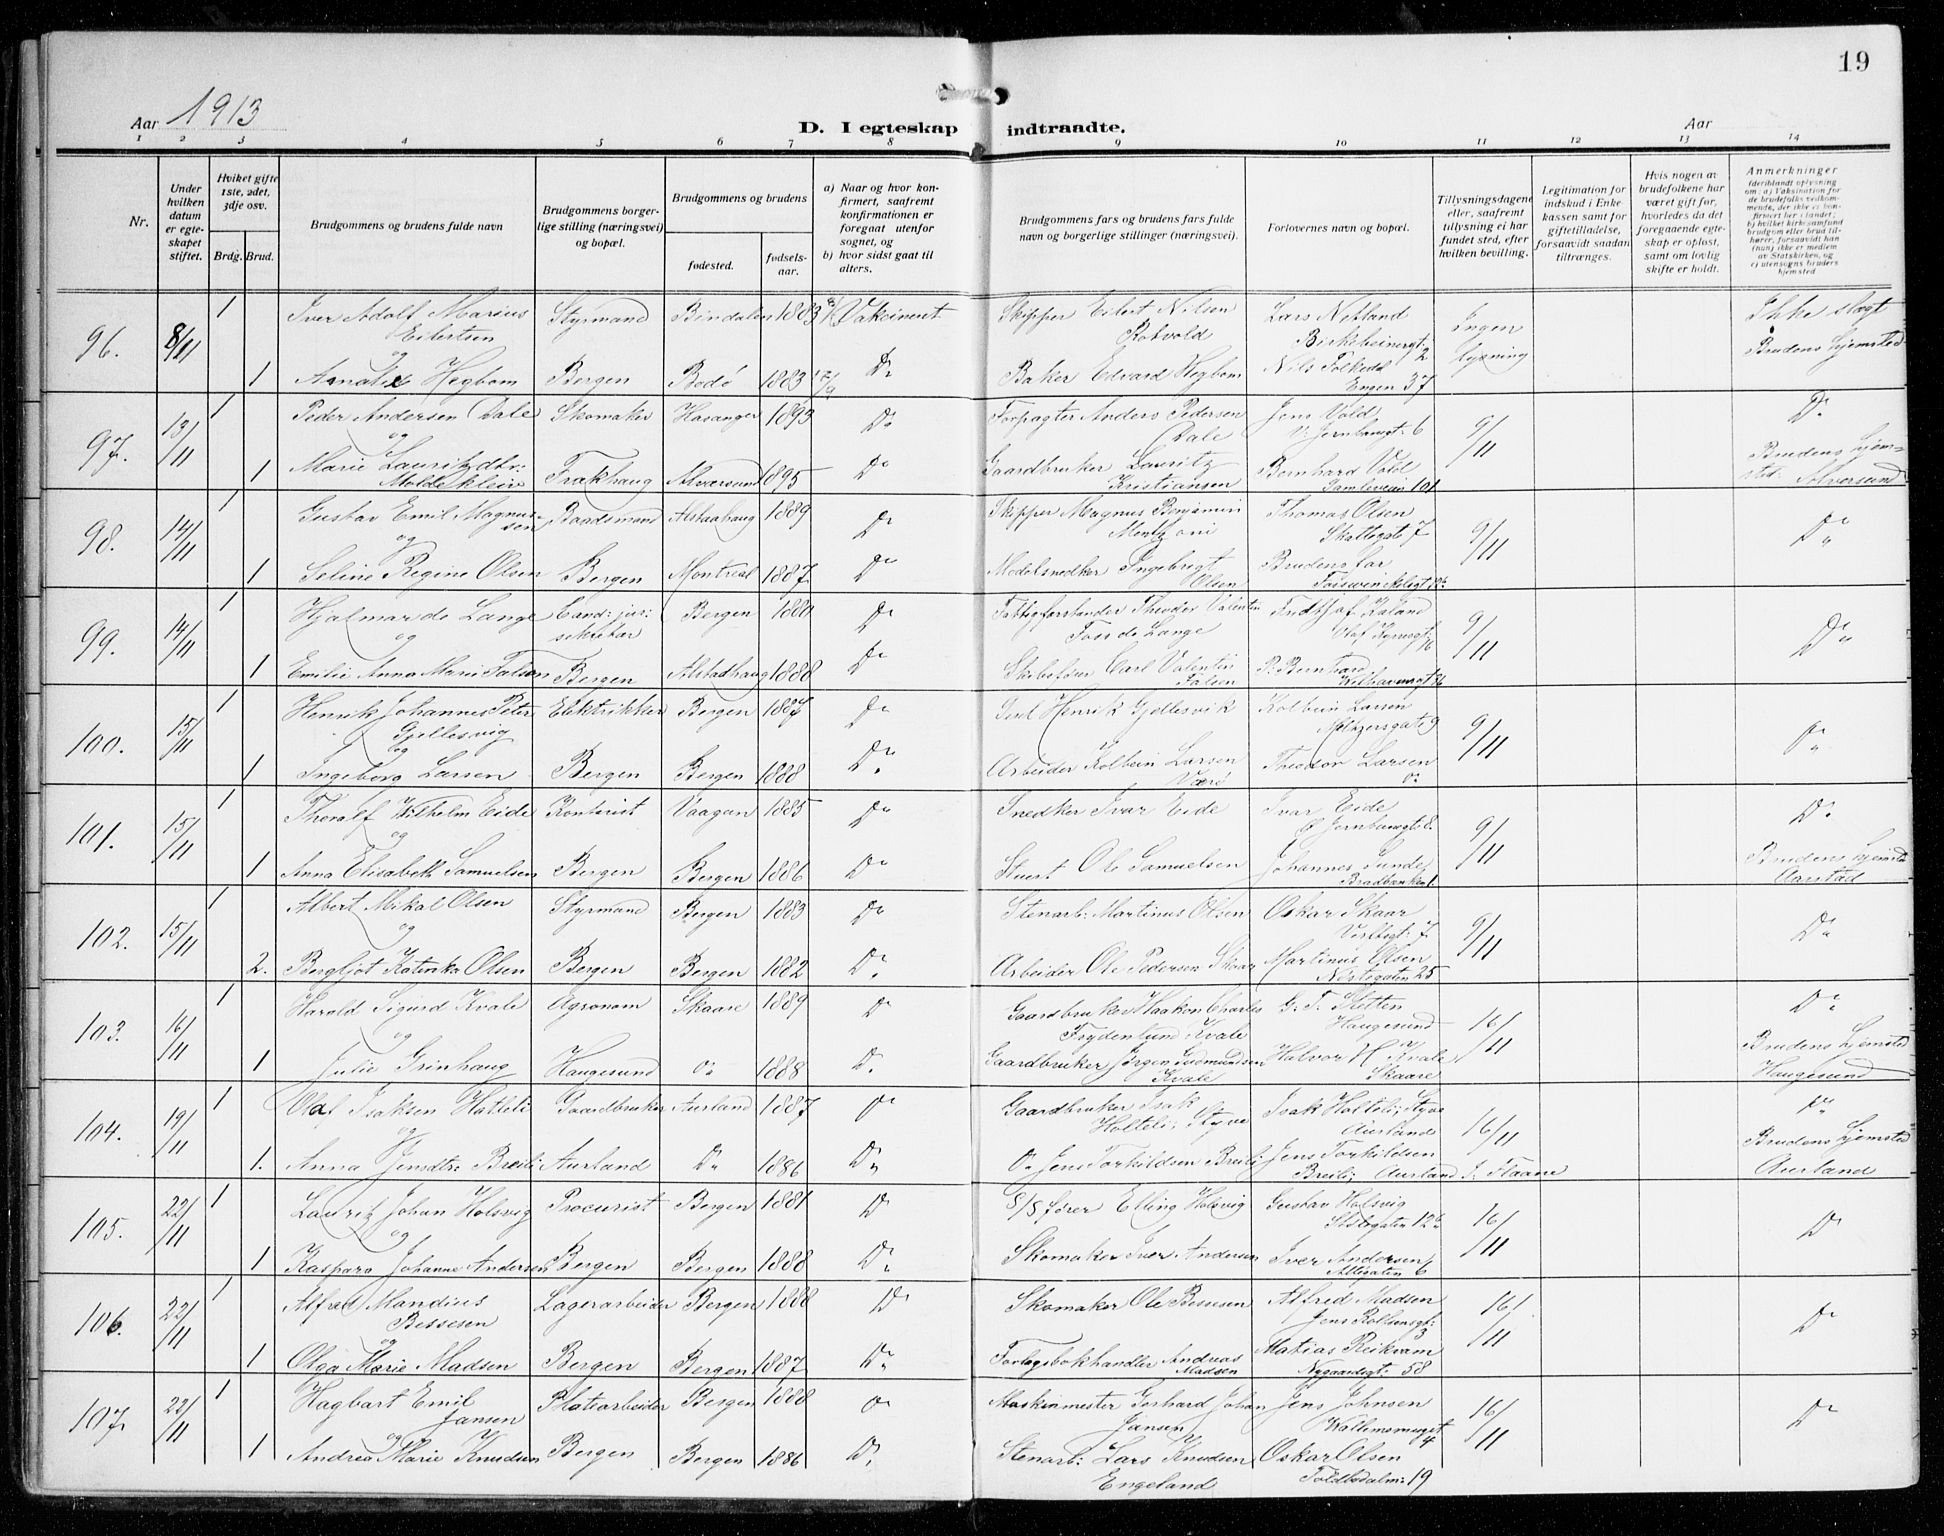 19
Aar 1913
D. I egteskap indtraadte.
Aar
1 2 3 4 5 6 7 8 9 10 11 12 13 14
Nr.
Under hvilken datum er egteskapet stiftet.
Hviket gifte 1ste, 2det, 3dje osv.
Brdg. Brud.
Brudgommens og brudens fulde navn
Brudgommens borgerlige stilling (næringsvei) og bopæl.
Brudgommens og brudens
fødested.
fødselsaar.
a) Naar og hvor konfirmert, saafremt konfirmationen er foregaat utenfor sognet, og
b) hvor sidst gaat til alters.
Brudgommens fars og brudens fars fulde navn og borgerlige stillinger (næringsvei).
Forlovernes navn og bopæl.
Tillysningsdagene eller, saafremt tillysning ei har fundet sted, efter hvilken bevilling.
Legitimation for indskud i Enkekassen samt for giftetilladelse, forsaavidt saadan tiltrænges.
Hvis nogen av brudefolkene har været gift før, hvorledes da det foregaaende egteskap er opløst, samt om lovlig skifte er holdt.
Anmerkninger
(deriblandt oplysning om: a) Vaksination for de brudefolks vedkommende, der ikke er konfirmert her i landet; b) hvilket kirkesamfund brudgom eller brud tilhører, forsaavidt han (hun) ikke er medlem av Statskirken, og c) utensogns bruders hjemsted
96. 8/11 1 Iver Adolf Marius Eilertsen Styrmand Bindalen 1883 Vaksinert Skipper Eilert Nilsen Rotvold Lars Netland Birkebeinergt. 2 Ingen lysning Ikke slegt
og
1 Hegbom Bergen Bodö 1883 Do Baker Edvard Hegbom Nils Folkedal Engen 37 Brudens hjemsted
97. 13/11 1 Peder Andersen Dale Skomaker 1893 Do Forpagter Anders Pedersen Dale Jens Vold V. Jernbanegt. 6 9/11 Do
og
1 Marie Lauritzdtr. Moldeklein Frækhaug Alversund 1895 Do Gaardbruker Lauritz Kristiansen Bernhard Vold 101 Brudens hjemsted: Alversund
98. 14/11 1 Gustav Emil Magnussen Baadsmand Alstahaug 1889 Do Skipper Magnus Benjamin Mentzoni Thomas Olsen Skottegate 7 9/11 Do
og
1 Seline Regine Olsen Bergen Montreal 1887 Do Modelsnedker Ingebrigt Olsen Brudens far
99. 14/11 1 Hjalmar de Lange Cand: jur: sekretær Bergen 1880 Do Fattigforstander Theodor Valentin Foss de Lange Fridthjof Kaland Olaf Kyrresgt. 9/11 Do
og
1 Emilie Anna Marie Falsen Bergen Alstadhaug 1888 Do Skibsfører Carl Valentin Falsen P. Bernhard
100. 15/11 1 Henrik Johannes Peter Gjellesvig Elektrikker Bergen 1887 Do Henrik Gjellesvik Kolbein Larsen Meltzersgate 9 9/11 Do
og
1 Ingeborg Larsen Bergen Bergen 1888 Do Arbeider Kolbein Larsen Værö Theodor Larsen Do
101. 15/11 1 Thoralf Wilhelm Eide Kontorist Vaagan 1885 Do Snedker Ivar Eide Ivar Eide Ø Jernbanegt. 8. 9/11 Do
og
1 Anna Elisabeth Samuelsen Bergen Bergen 1886 Do Stuert Ole Samuelsen Johannes Sunde Bradbænken 1. Brudens hjemsted Aarstad
102. 15/11 1 Albert Mikal Olsen Styrmand Bergen 1883 Do Stenarb: Martinus Olsen Oskar Skaar 7. 9/11 Do
og
2. Bergljot Katinka Olsen Bergen Bergen 1882 Do Arbeider Ole Pedersen Skaar Martinus Olsen Nöstegaten 25
103. 16/11 1 Harald Sigurd Kvale Agronom Skaare 1889 Do Gaardbruker Haakon Charles Frydenlund Kvale G. T. Sletten Haugesund 16/11 Do
og
1 Julie Grinhaug Haugesund Do 1888 Do Gaardbruker Jørgen Gudmundsen Kvale Halvor H. Kvale Skaare Brudens hjemsted Haugesund
104. 19/11 1 Olaf Isaksen Holteli Gaardbruker Aurland 1887 Do Gaardbruker Isak Holteli, Styve Isak Holteli, Styve Aurland 16/11 Do
og
1. Anna Jensdtr. Breili Aurland Do 1886 Do Do Jens Torkildsen Breili Jens Torkildsen Breili, Aurland Brudens hjemsted Aurland
105. 22/11 1 Lauritz Johan Holsvig Procurist Bergen 1881 Do S/Sfører Elling Holsvig Gustav Holsvig 16/11 Do
og
1 Kaspara Johanne Andersen Bergen Bergen 1888 Do Skomaker Iver Andersen Iver Andersen Allégaten 6
106. 22/11 1 Alfred Mandius Bessesen Lagerarbeider Bergen 1888 Do Skomaker Ole Bessesen Alfred Madsen Jens Rolfsensgt: 3 16/11 Do
og
1 Olga Marie Madsen Bergen Bergen 1887 Do Forlagsbokhandler Andreas Madsen Matias Reikvam Nygaardsgt: 58
107. 22/11 1 Hagbart Emil Jansen Platearbeider Bergen 1888 Do Maskinmester Gerhard Johan Jansen Jens Johnsen 4 16/11 Do
og
1 Andrea Marie Knudsen Bergen Bergen 1886 Do Stenarb: Lars Knudsen Engeland Oskar Olsen 19